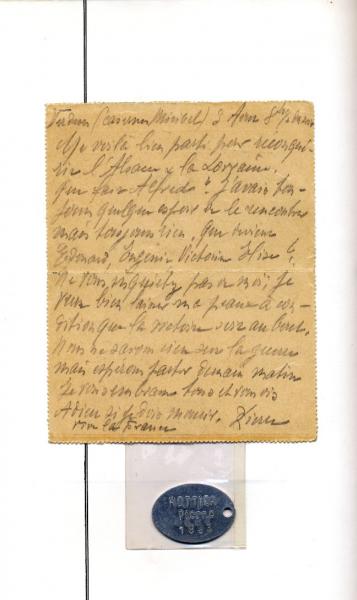 Verdun (Caserne Miribel) 3 Aout 8h
Me voilà bien parti pour reconqué-
rir l'Alsace y la Lorraine.
Que fait Alfredo? J'avais tou-
jours quelque espoir de le rencontrer
mais toujours rien, que
Edouard, Eugénie Victoria Elise?
Ne vous inquiety pas de moi; je
veux bien laisser ma peau à con-
dition que la victoire sera au bout.
Nous ne savons rien sur la guerre
mais esperons partir demain matin
Je vous embrasse tous et vous dis
Adieu si je dois mourir. Pierre
vive la France
HOTTIER
PIERRE